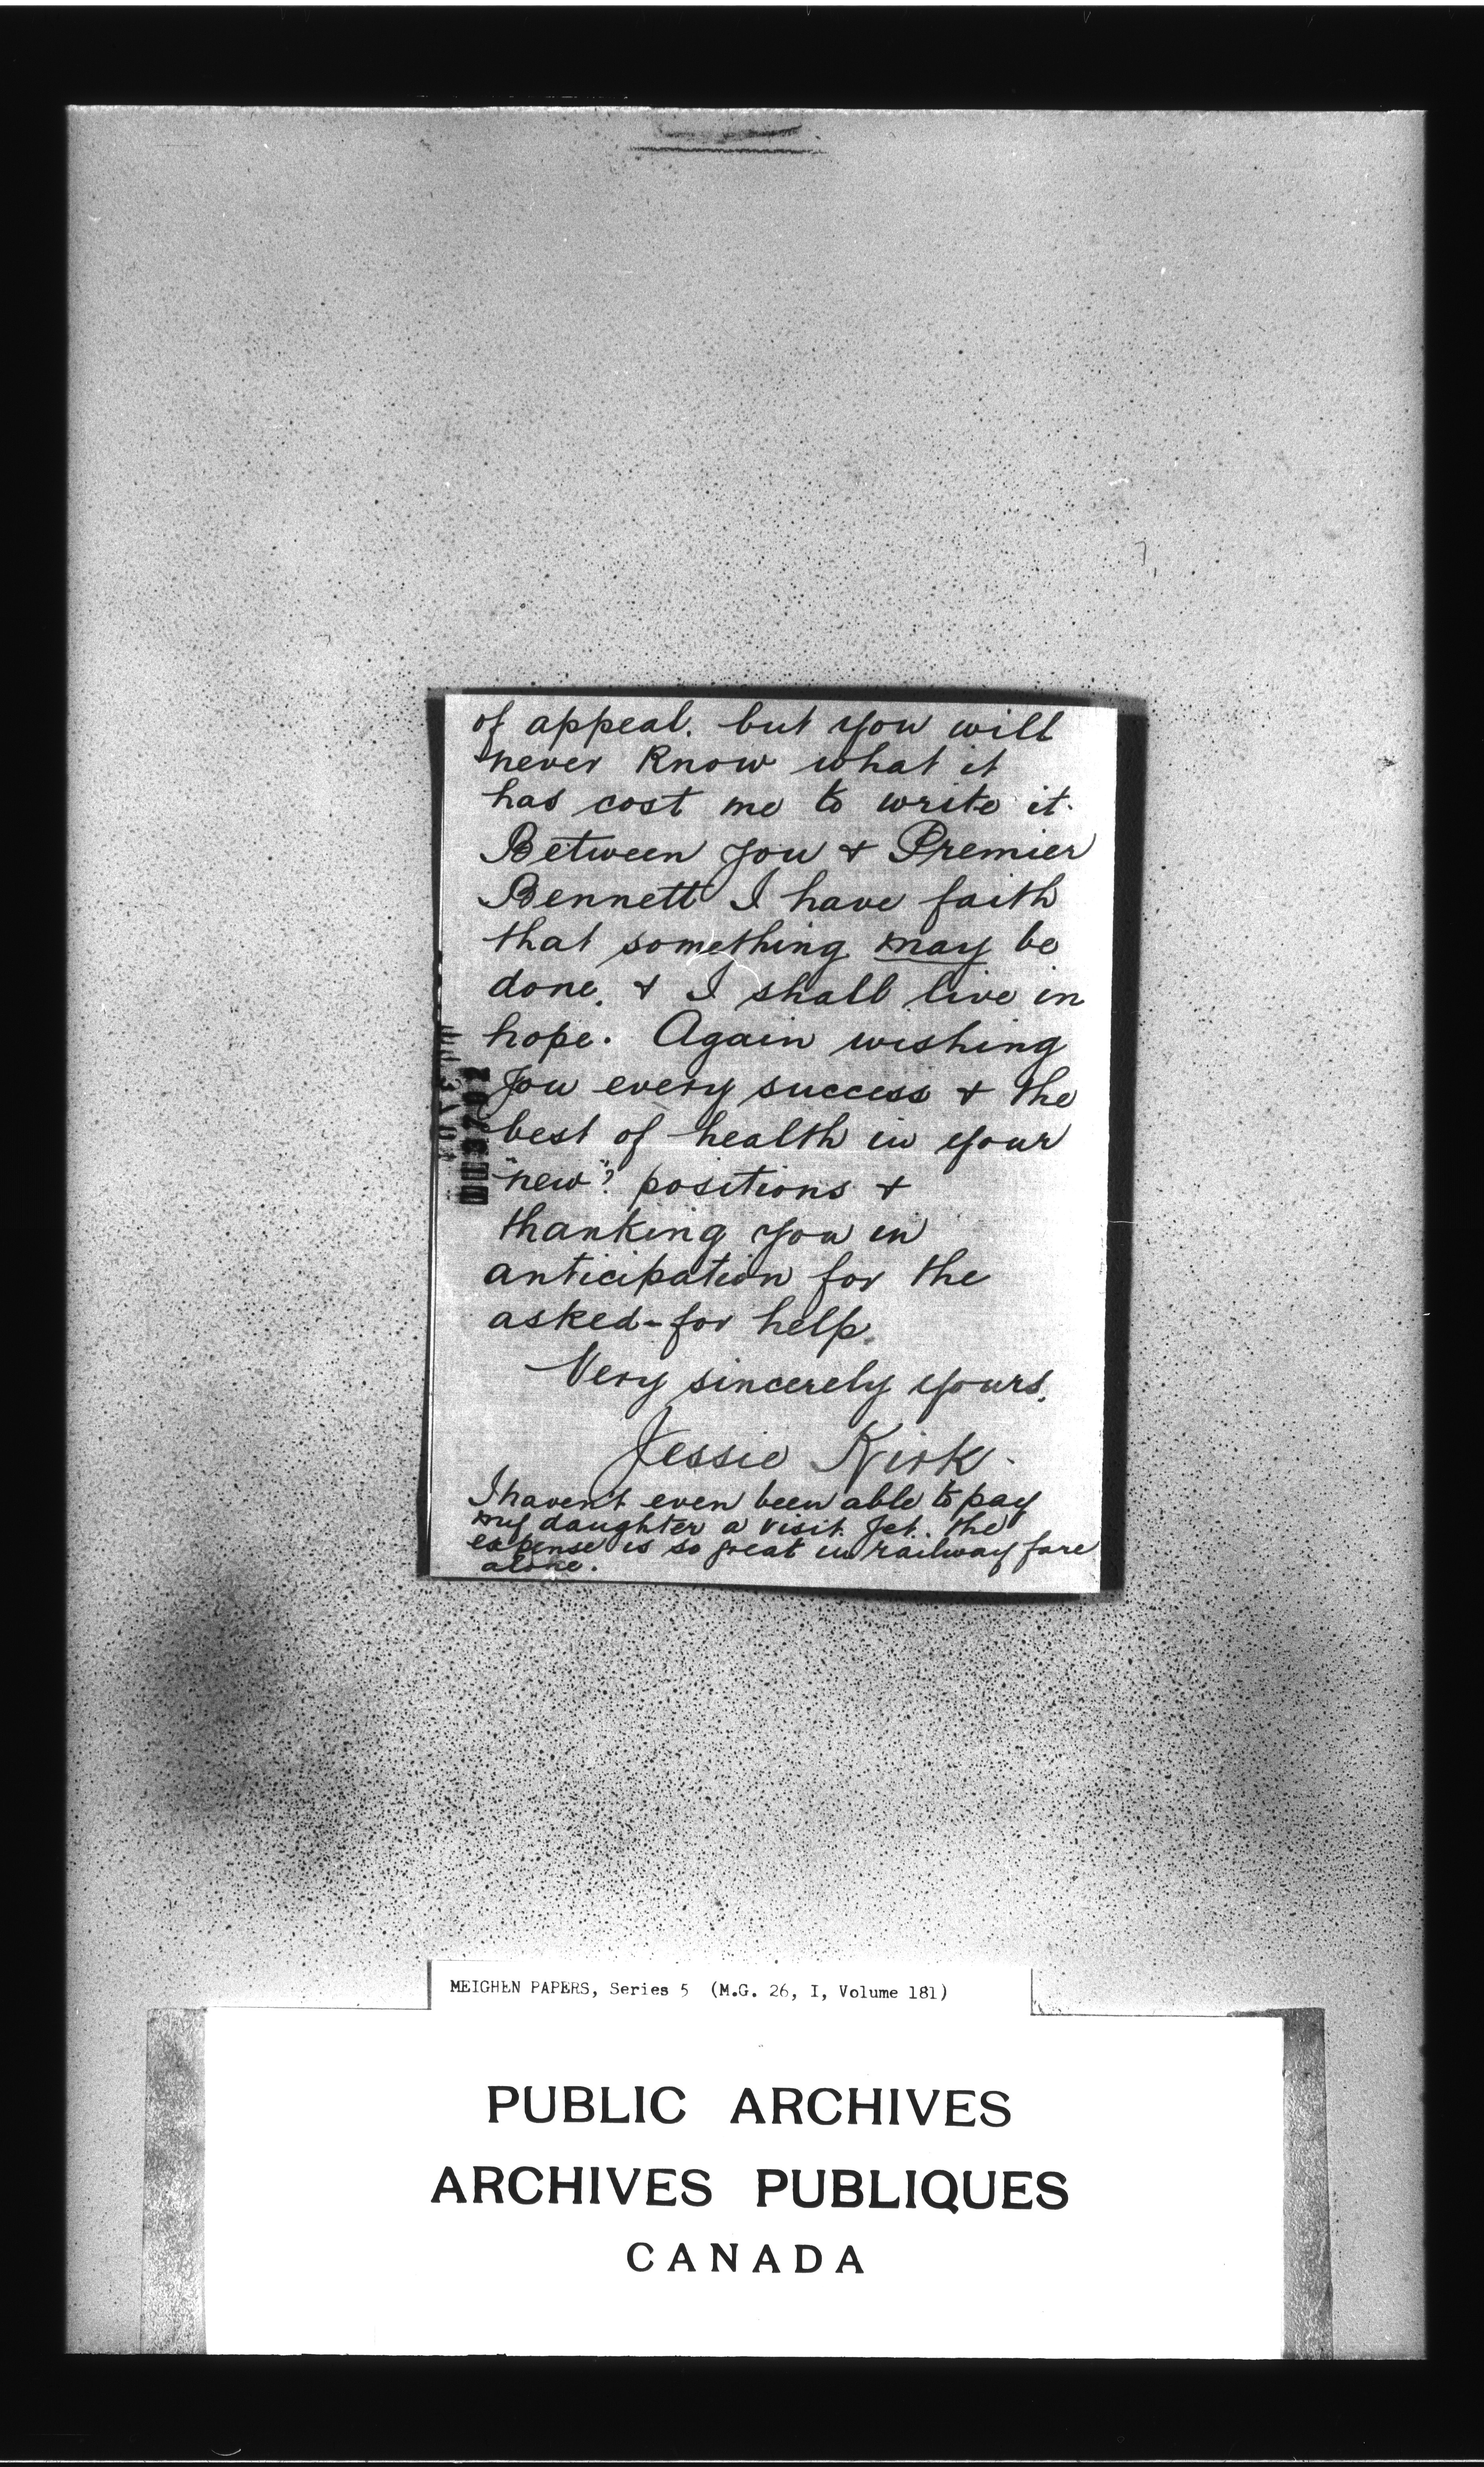 of appeal. but you will
never know what it
has cost me to write it.
Between you & Premier
Bennett I have faith
that something may be
done, & I shall live in
hope. Again wishing
you every success & the
best of health in your
"new"? positions &
thanking you in
anticipation for the
asked-for help.
Very sincerely yours,
Jessie Kirk.
I haven't even been able to pay
my daughter a visit yet. the
expense is so great in railway fare
alone.
MEIGHEN PAPERS, Series 5 (M.G. 26, I, Volume 181)
PUBLIC ARCHIVES
ARCHIVES PUBLIQUES
CANADA